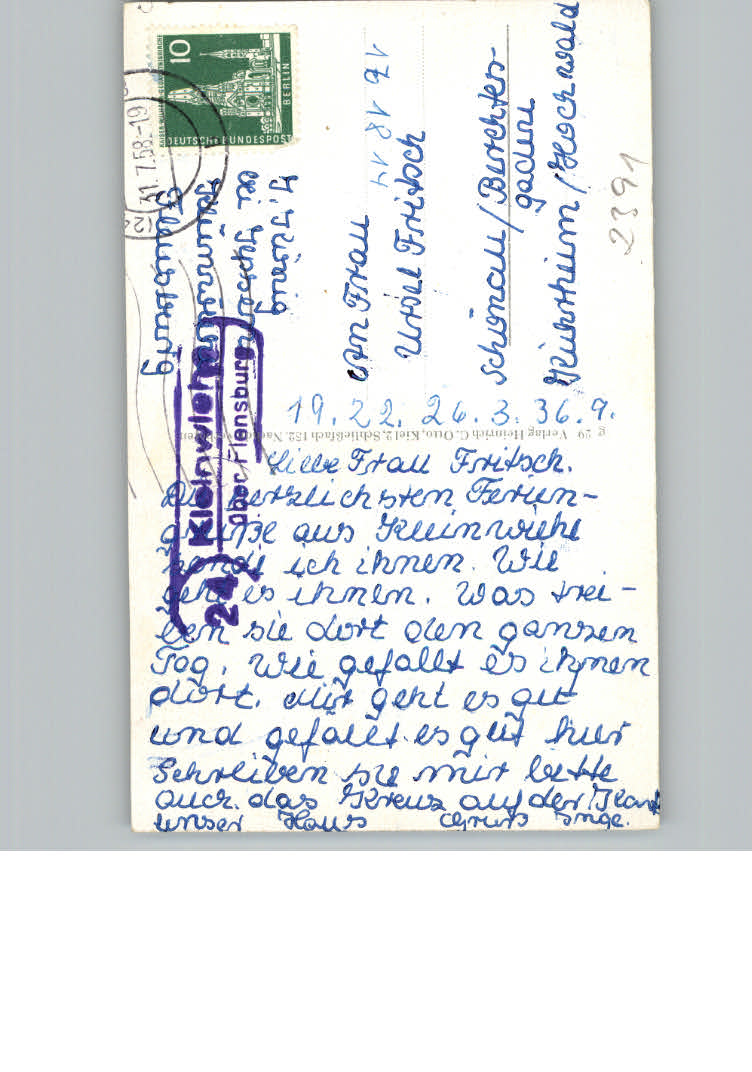 Liebe Frau Fritsch.
Die herzlichsten Ferien-
grüße aus Kleinwiehe
sende ich ihnen. Wie
geht es ihnen. Was trei-
ben sie dort den ganzen
Tag. Wie gefallt es ihnen
dort. Mir geht es gut
und gefällt es gut hier
Schreiben sie mir bitte
auch. das Kreuz auf der Kart
unser Haus Gruß Inge.
19. 22. 26. 3. 36. 9.
g 29 Verlag Heinrich C. Otto, Kiel 2, Schließfach 152
An Frau
Ursel Fritsch
Schönau / Berchtes-
gaden
Kinderheim / Hochwald
bei
Flensburg
24
Kleinwiehe
über Flensburg
31.7.58.-19
10
DEUTSCHE BUNDESPOST
BERLIN
2391